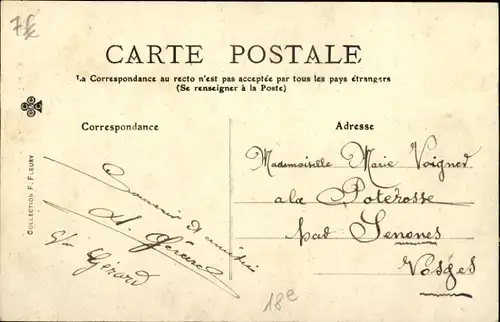 CARTE POSTALE
La Correspondance au recto n'est pas acceptée par tous les pays étrangers
(Se renseigner à la Poste)
Correspondance
Adresse
COLLECTION F. FLEURY
Souvenir et amitiés
Gérard
Mademoiselle Marie Voigner
a la Poterosse
par Senones
Vosges
18e